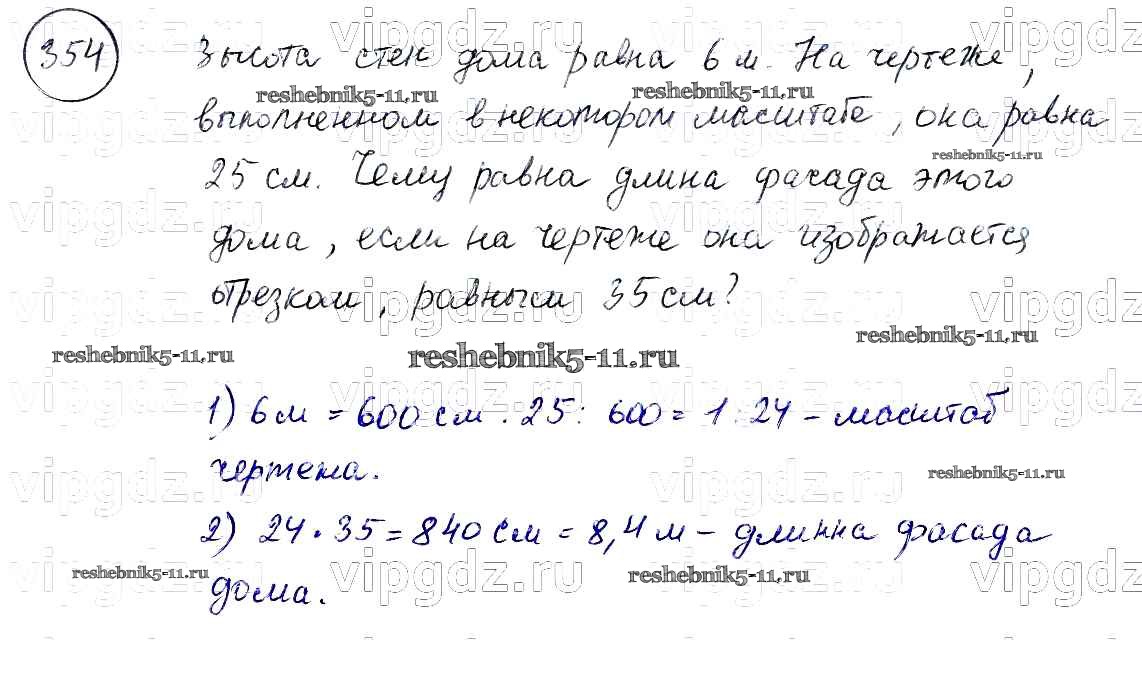 354 Высота стен дома равна 6 м. На чертеже,
выполненном в некотором масштабе, она равна
25 см. Чему равна длина фасада этого
дома, если на чертеже она изображается
отрезком, равным 35 см?
1) 6 м = 600 см. 25 : 600 = 1 : 24 – масштаб
чертежа.
2) 24 · 35 = 840 см = 8,4 м – длинна фасада
дома.
vipgdz.ru
reshebnik5-11.ru